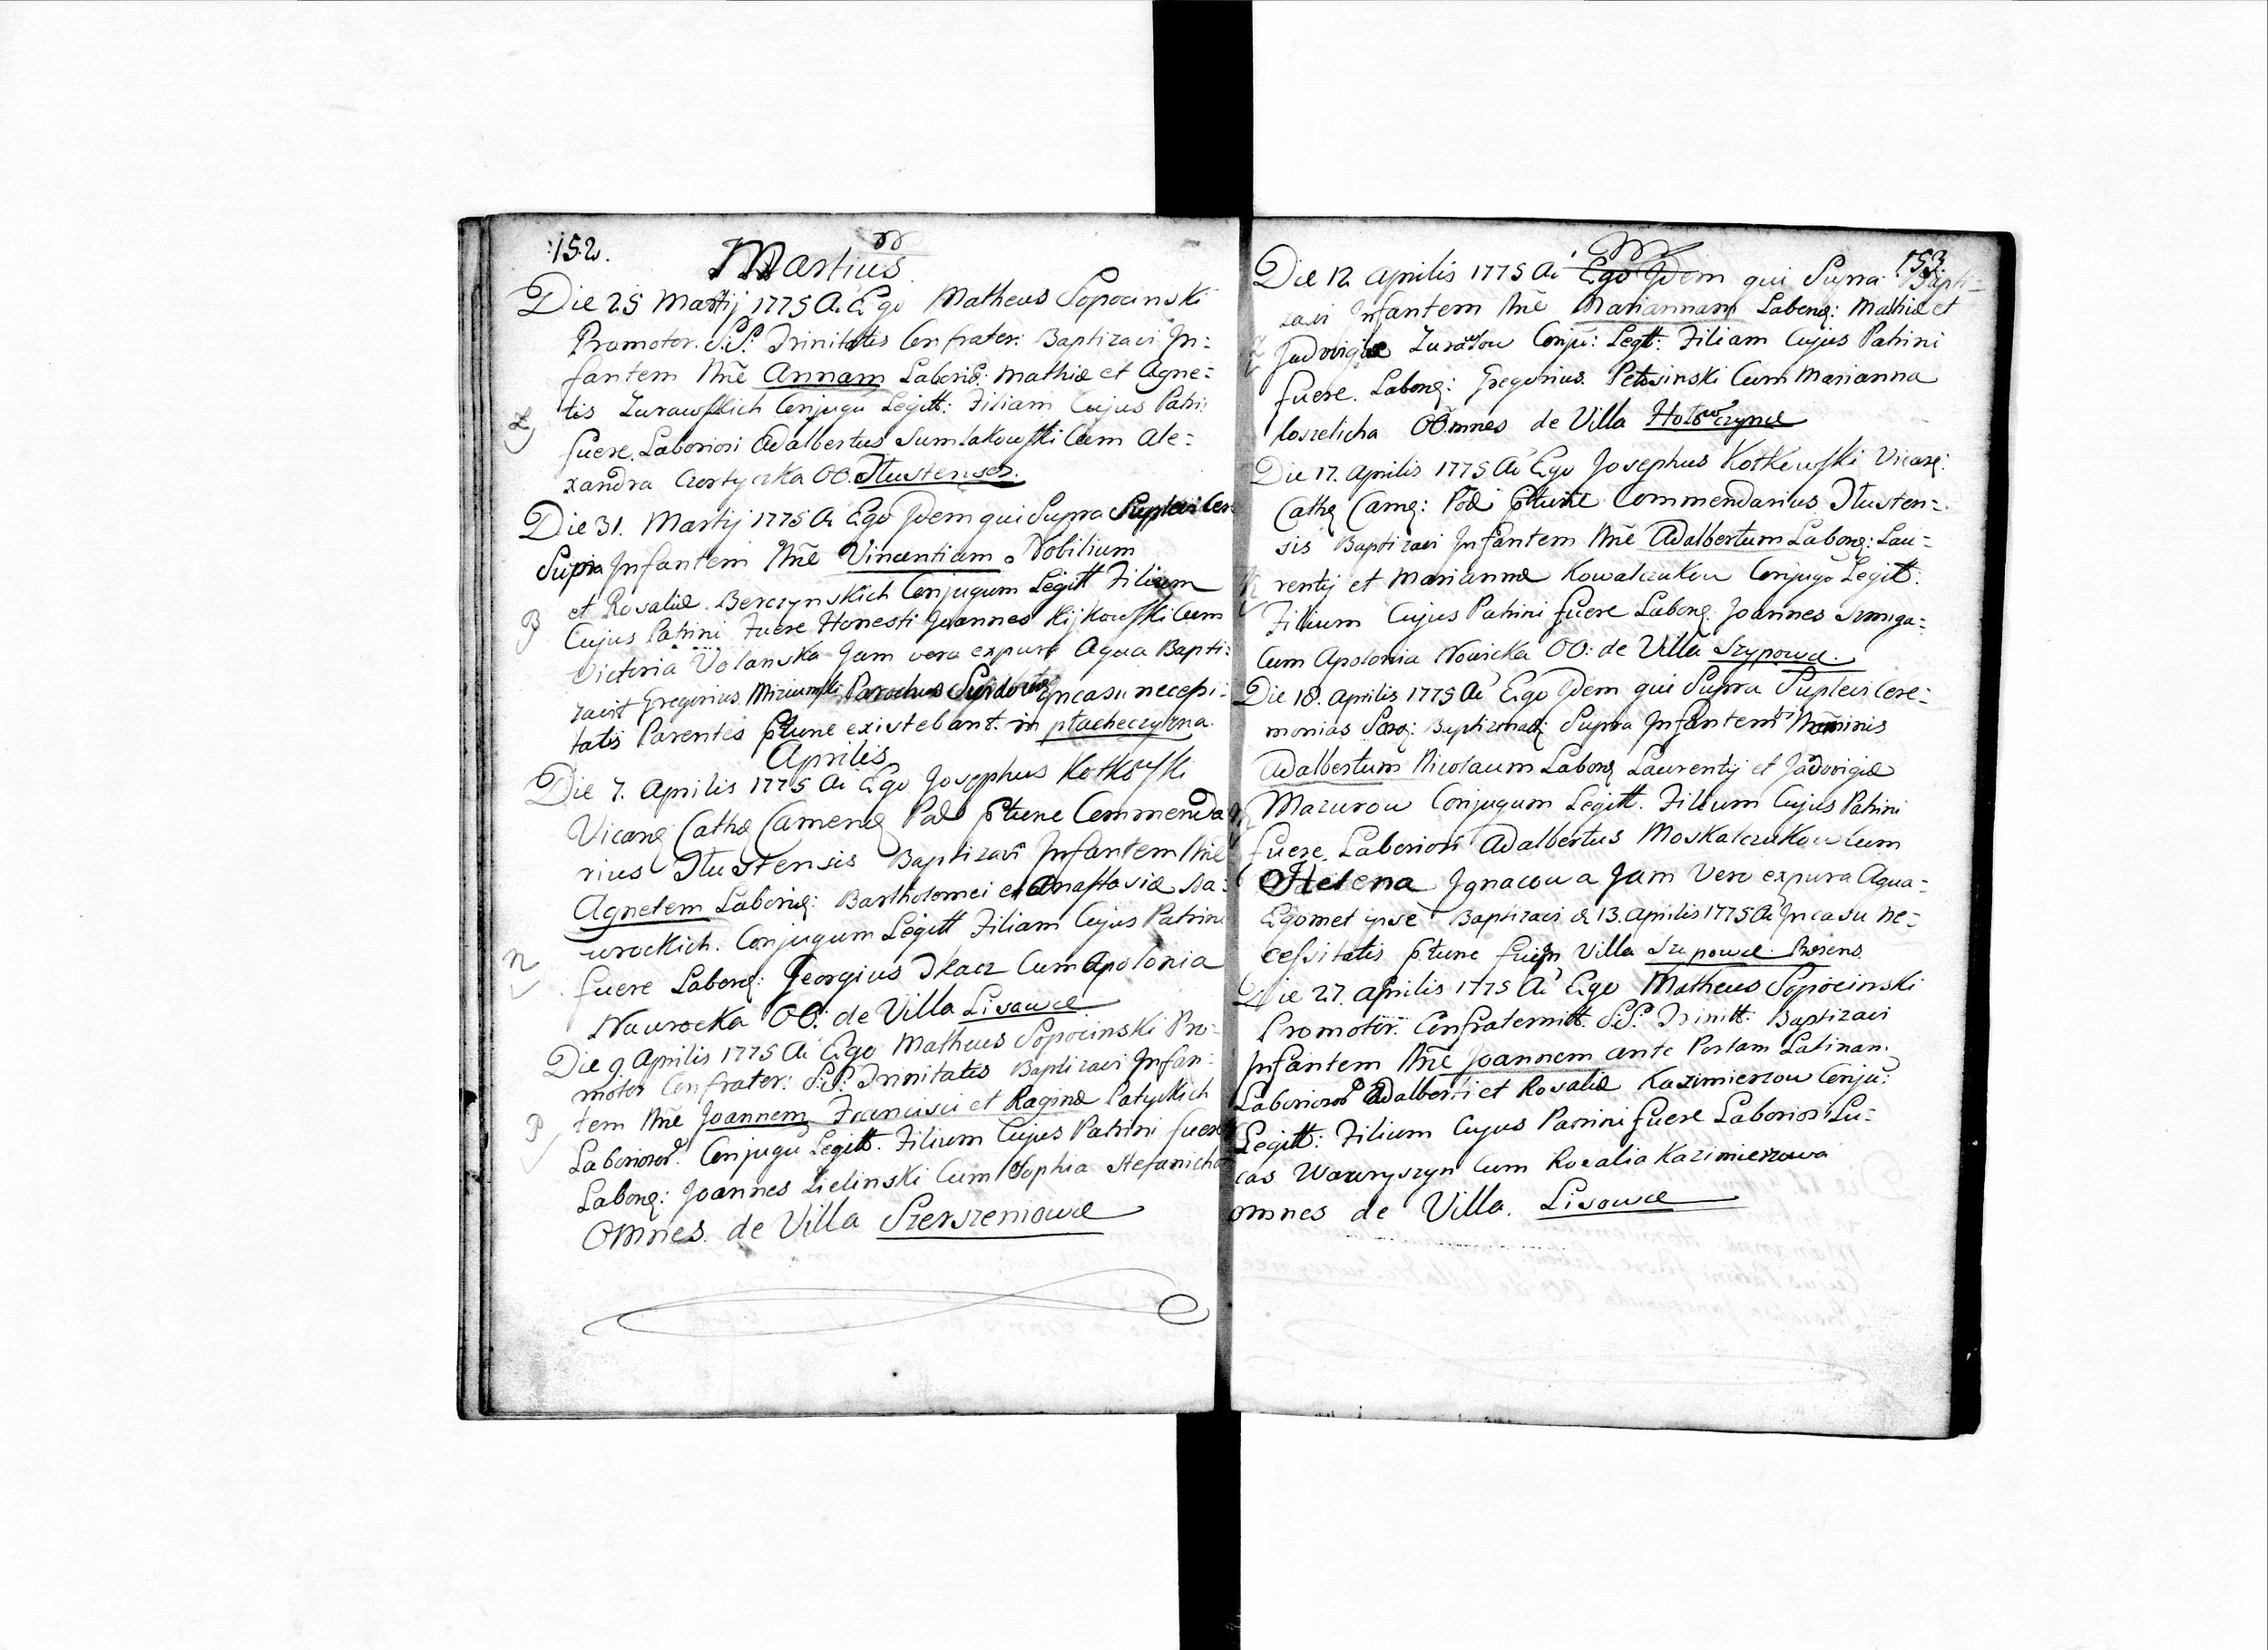 :152.
Martius
Die 25 Martij 1775 A. Ego Matheus Sopocinski
Promotor. S:S: Trinitatis Confrater: Baptizavi In=
fantem Nne Annam Laborio: Mathiæ et Agne=
tis Zurawskich Conjugu Legitt: Filiam Cujus Patri:
fuere. Laboriosi Adalbertus Sumlakowski Cum Ale=
xandra Czortyczka OO. Tlustenses.
Die 31. Martij 1775 A Ego Idem qui Supra Suplevi Cere
Supra Infantem Nne Vincentiam. Nobilium
et Rosaliæ. Berczynskich Conjugum Legitt Filiam
Cujus Patrini Fuere Honesti Joannes Kijkowski Cum
Victoria Volanska Jam vero expura Aqua Bapti:
zavit Gregorius Parochus in casu necessi=
tatis Parentes ptunc existebant in
Aprilis
Die 7. Aprilis 1775 Ai Ego Josephus Kotkowski
Vicarq Cathq Camenq Pod ptunc Commenda
rius Tlustensis Baptizavi Infantem Nne
Agnetem Laborioq: Bartholomei et Anastasiæ Na=
wrockich. Conjugum Legitt Filiam Cujus Patrini
fuere Laborq: Georgius Tkacz Cum Apolonia
Nawrocka OO: de Villa Lisowce
Die 9. Aprilis 1775 Ai Ego Matheus Sopocinski Pro=
motor Confrater: S:S: Trinitatis Baptizavi Infan=
tem Nne Joannem Francisci et Reginæ Patyckich
Laborioso. Conjugu Legitt. Filium Cujus Patrini fuere
Laborq: Joannes Zielinski Cum Sophia Stefanicha
Omnes. de Villa Szerszeniowce
153
Die 12 Aprilis 1775 Ai Ego Idem qui Supra Bapti=
zavi Infantem Nne Mariannam Laborq: Mathiæ et
Judvigiæ Conju: Legt: Filiam Cujus Patrini
fuere. Laborq: Gregorius. Petrsinski Cum Marianna
Koszelicha OOmnes de Villa Holowczynce
Die 17. Aprilis 1775 Ai Ego Josephus Kotkowski Vicarq:
Cathq Camq: Pod Ptunc Commendarius Tlusten=
sis Baptizavi Infantem Nne Adalbertum Laborq: Lau=
rentij et Mariannæ Kowalczukow Conjugo Legitt.
Filium Cujus Patrini fuere Laborq. Joannes Szmiga=
Cum Apolonia Nowicka OO: de Villa Szypowce.
Die 18. Aprilis 1775 Ai Ego Idem qui Supra Suplevi Cere=
monias Sacrq: Baptizmatq Supra Infantem Nominis
Adalbertum Nicolaum Laborq Laurentij et Jadvigiæ
Mazurow Conjugum Legitt. Filium Cujus Patrini
fuere. Laboriosi Adalbertus Moskalczukow Cum
Helena Ignacowa Jam Vero expura Aqua=
Egomet ipse Baptizavi d 13. Aprilis 1775 Ai In casu ne=
cessitatis ptunc fui in Villa Szypowce. Presens
Die 27. Aprilis 1775 Ai Ego Matheus Sopocinski
Promotor. Confraternitt. S:S: Trinitt. Baptizavi
Infantem Nne Joannem ante Portam Latinam
Laborioso Adalberti et Rosaliæ Kazimierzow Conju:
Legitt: Filium Cujus Patrini fuere Laboriosi Lu=
cas Wawryszyn Cum Rosalia Kazimierzowa
Omnes de Villa. Lisowce